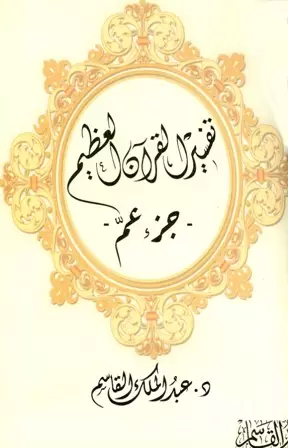 تفسير القرآن العظيم
- جزء عمّ -
د. عبد الملك القاسم
القاسم